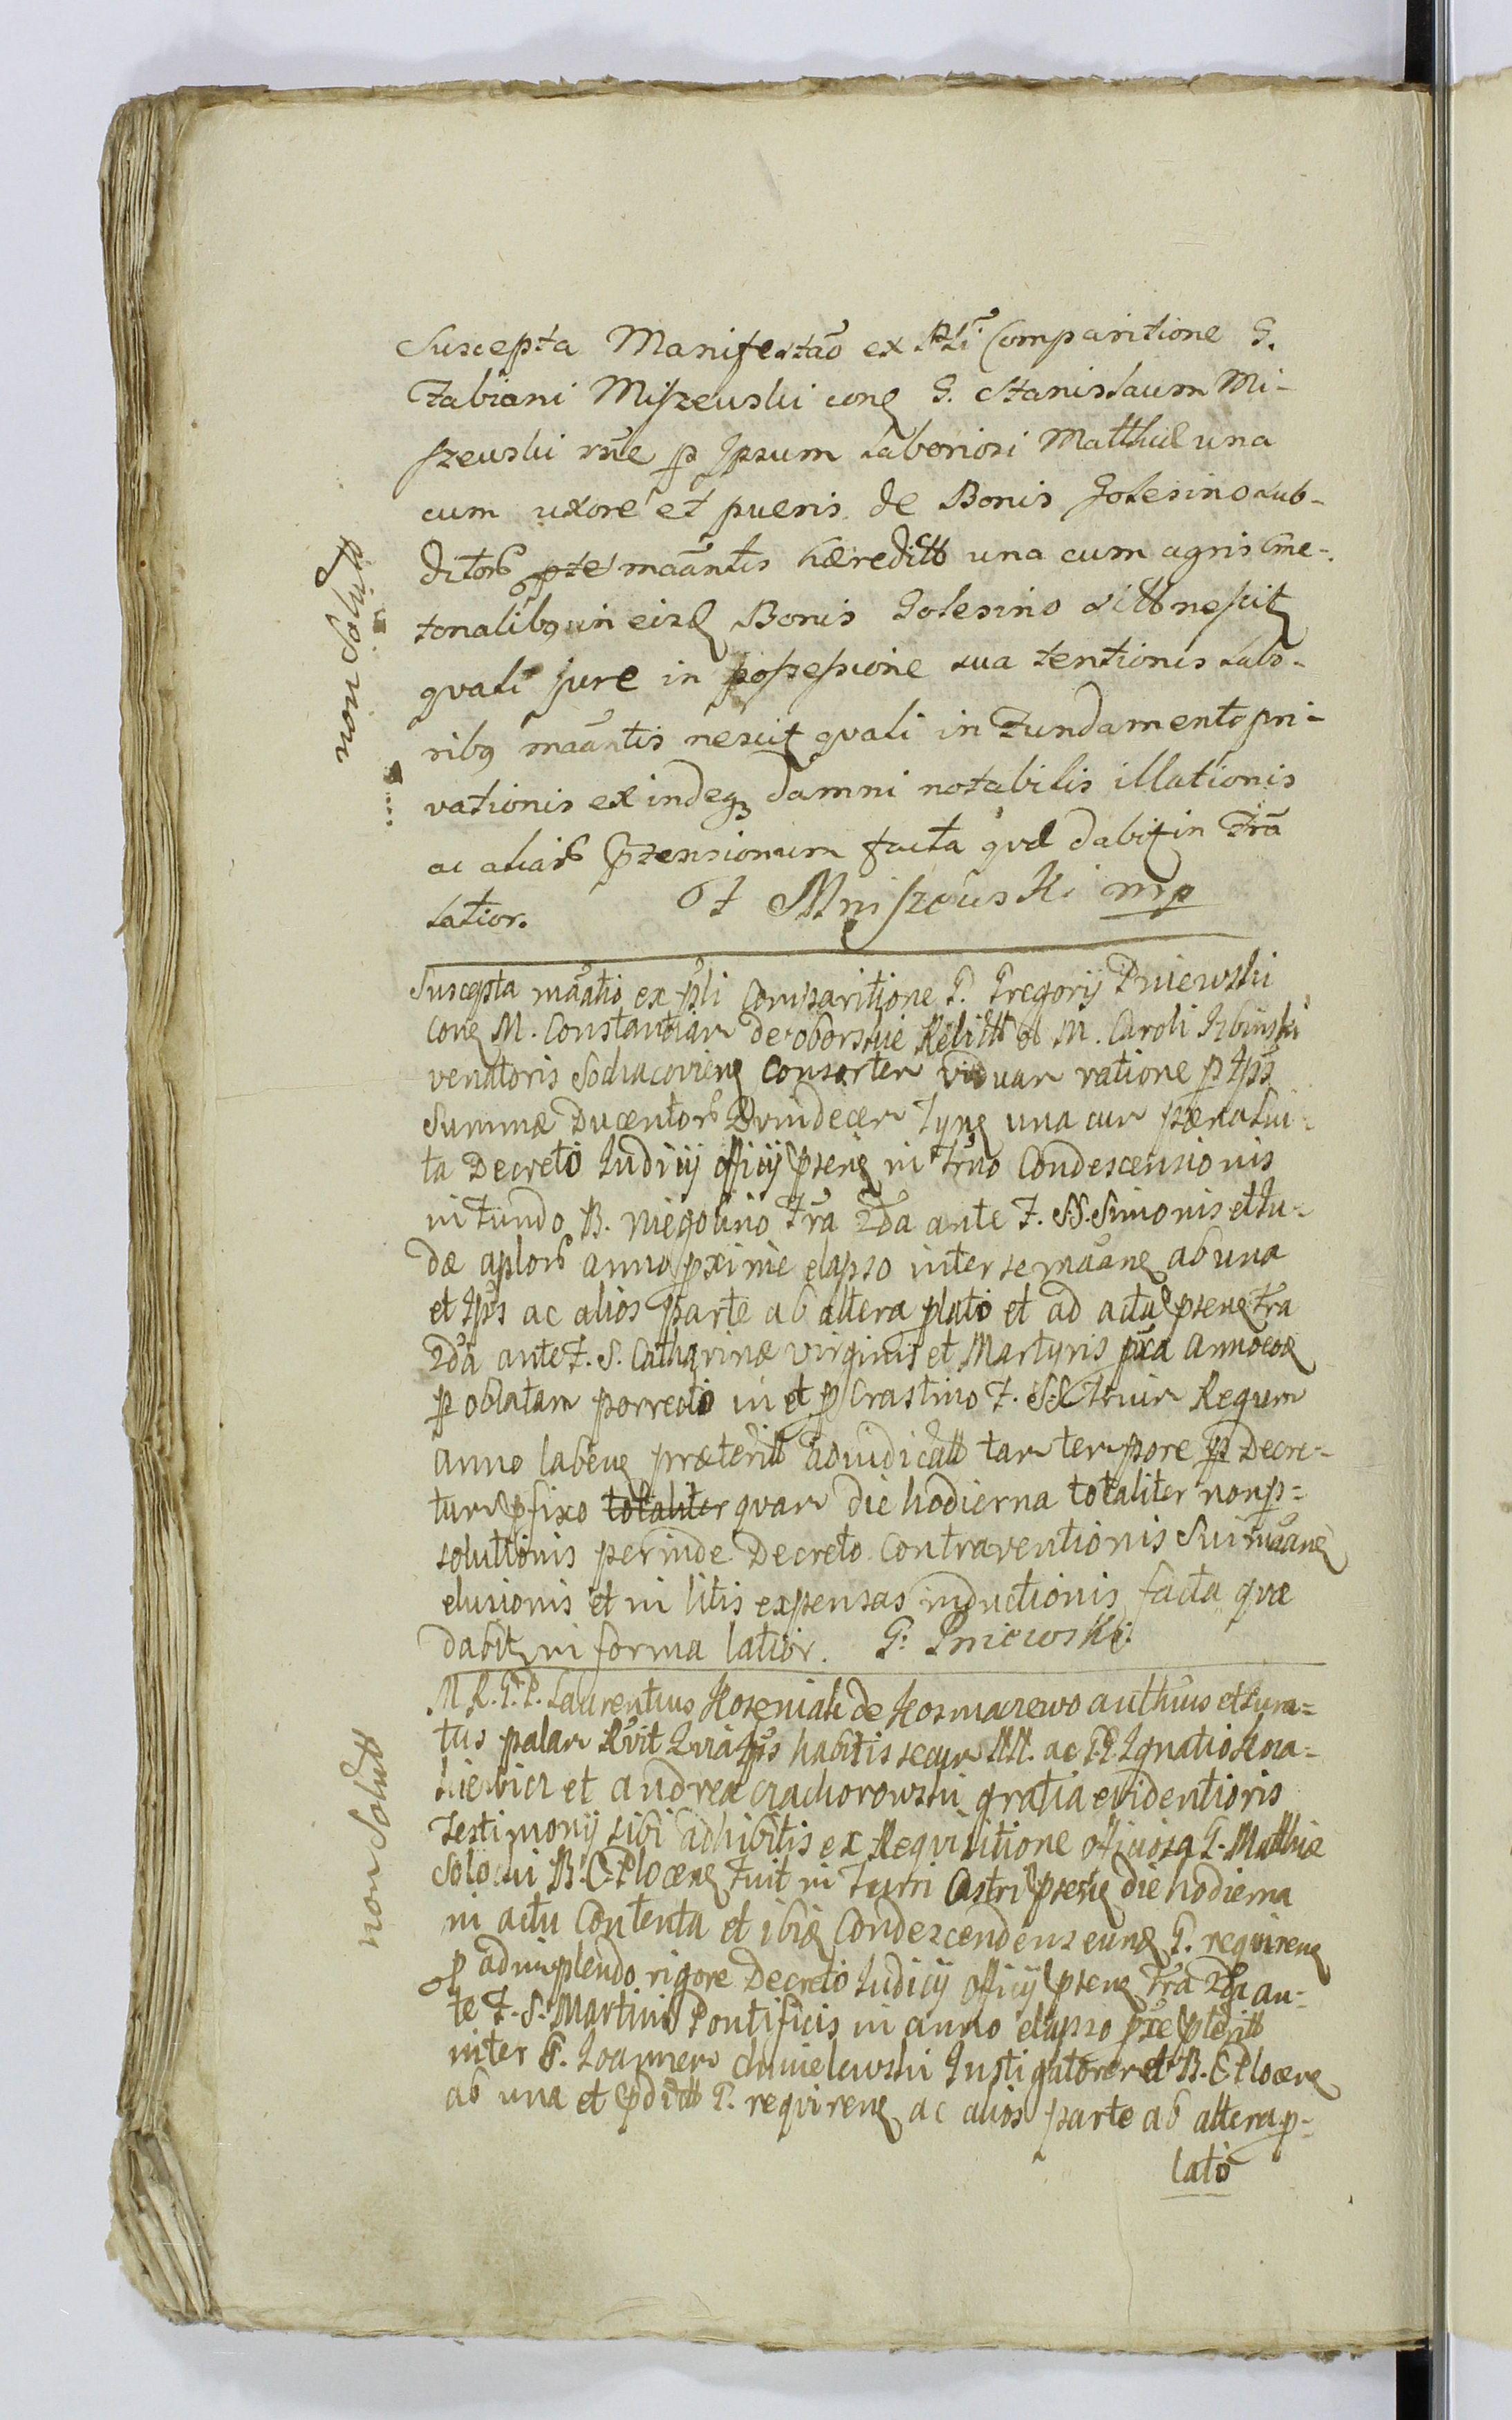 Suscepta Manifestaõ ex Psli Comparitione G.
Fabiani Miszewski cong G. Stanislaum Mi-
szewski rñe p Ipsum laboriosi Matthiæ una
cum uxore et pueris de Bonis Golesino sub-
ditorb maantis hæreditt una cum agris Cme-
tonalibg in eisd Bonis Golesino sittnescit
quali jure in possessione sua tentionis labo-
ribg maantis nescit quali in Fundamento pri-
vationis exindeq damni notabilis illationis
ac aliarb Prtensionum facta quæ dabit in Fra
latior. Mniszewski mp
non Solutt
Suscepta maatio ex psli Comparitione G. Gregorij Pniewski
cong M. Constantiam de oborskie Relictt M. Caroli Izbinski
venatoris Sochacovieng Consortem viduam ratione p Ips
Summæ Ducentorb Duindecem Tyng una cum pæna lui-
ta Decreto Iudicij officij pseng in Trno Condescensionis
in Fundo B. niegolino Fra 2da ante F. S.S. Simonis et Iu-
dæ aplorb anno pxime elapso inter se maang ab una
et Ips ac alios parte ab altera plato et ad acta pseng Fra
2da ante F. S. Catharinæ virginis et Martyris pxa anno eod
p oblatam porrecto in et p Crastino F. SS. Trium Regum
anno labeng præteritt adiudicatt tam tempore p Decre-
tum pfixo totaliter quam die hodierna totaliter non p-
solutionis perinde Decreto Contraventionis Sui maang
elusionis et in litis expensas inductionis facta quæ
dabit in forma latior. G: Pniewski.
M. R. G. P. Laurentius Kozeniak de Kosmaczewo authcus et Iura-
tus palam Rvit Quia Ips habitis secum NN. ac GG Ignatio
et Andrea Czachorowski gratia evidentioris
Testimonij sibi adhibitis ex Requisitione officiosa G. Matthiæ
B. C. Ploceng Fuit in Turri Castri pseng die hodierna
in actu Contenta et ibid Condescendens eund G. requireng
p adimplendo rigore Decreto Iudicij officij pseng Fra 2da an-
te F. S. Martini Pontificis in anno elapso pxe pteritt
inter G. Ioannem Chmielewski Instigatorem B. C. Ploceng
ab una et pditt G. requireng ac alios parte ab altera p-
lato
non Solutt